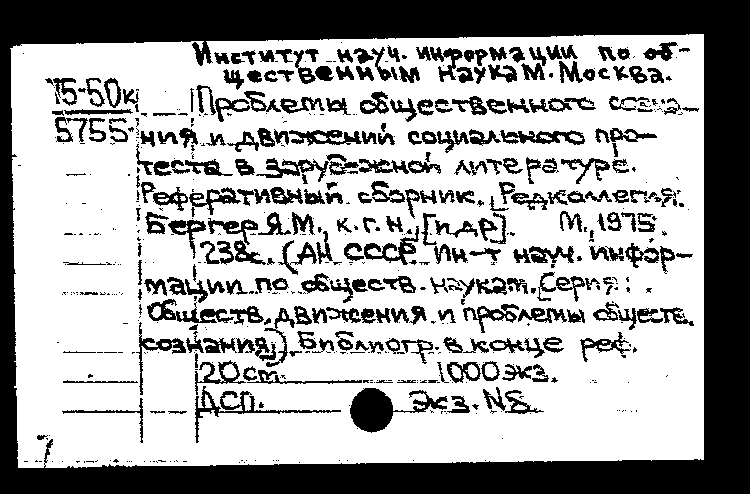 Институт науч. информации по об-
щественным наукам. Москва.
75-50к
5755
Проблемы общественного созна-
ния и движений социального про-
теста в зарубежной литературе.
Реферативный сборник. [Редколлегия:
Бергер Я.М., к.г.н., [и др]. М., 1975.
238с. (АН СССР Ин-т науч. инфор-
мации по обществ. наукам. Серия: .
Обществ. движения и проблемы обществ.
сознания). Библиогр. в конце реф.
20 см. 1000 экз.
ДСП. Экз. N8
7